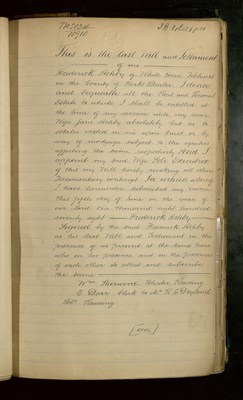 This is the last Will and Testament
of me
Frederick Kebby of
in the County of Berks. I devise
and bequeath all the Real and Personal
Estate to which I shall be entitled at
the time of my decease unto my dear
Wife Jane Kebby absolutely but as to
estates vested in me upon trust or by
way of mortgage subject to the equities
affecting the same respectively And I
appoint my said Wife Sole Executrix
of this my Will hereby revoking all other
Testamentary writings In witness whereof
I have hereunder subscribed my name
this fifth day of June in the year of
our Lord One thousand eight hundred
seventy eight — Frederick Kebby
Signed by the said Frederick Kebby
as his last Will and Testament in the
presence of us present at the same time
who in his presence and in the presence
of each other do attest and subscribe
the same
Wm Sherwood
Clerk to Mr
[over]